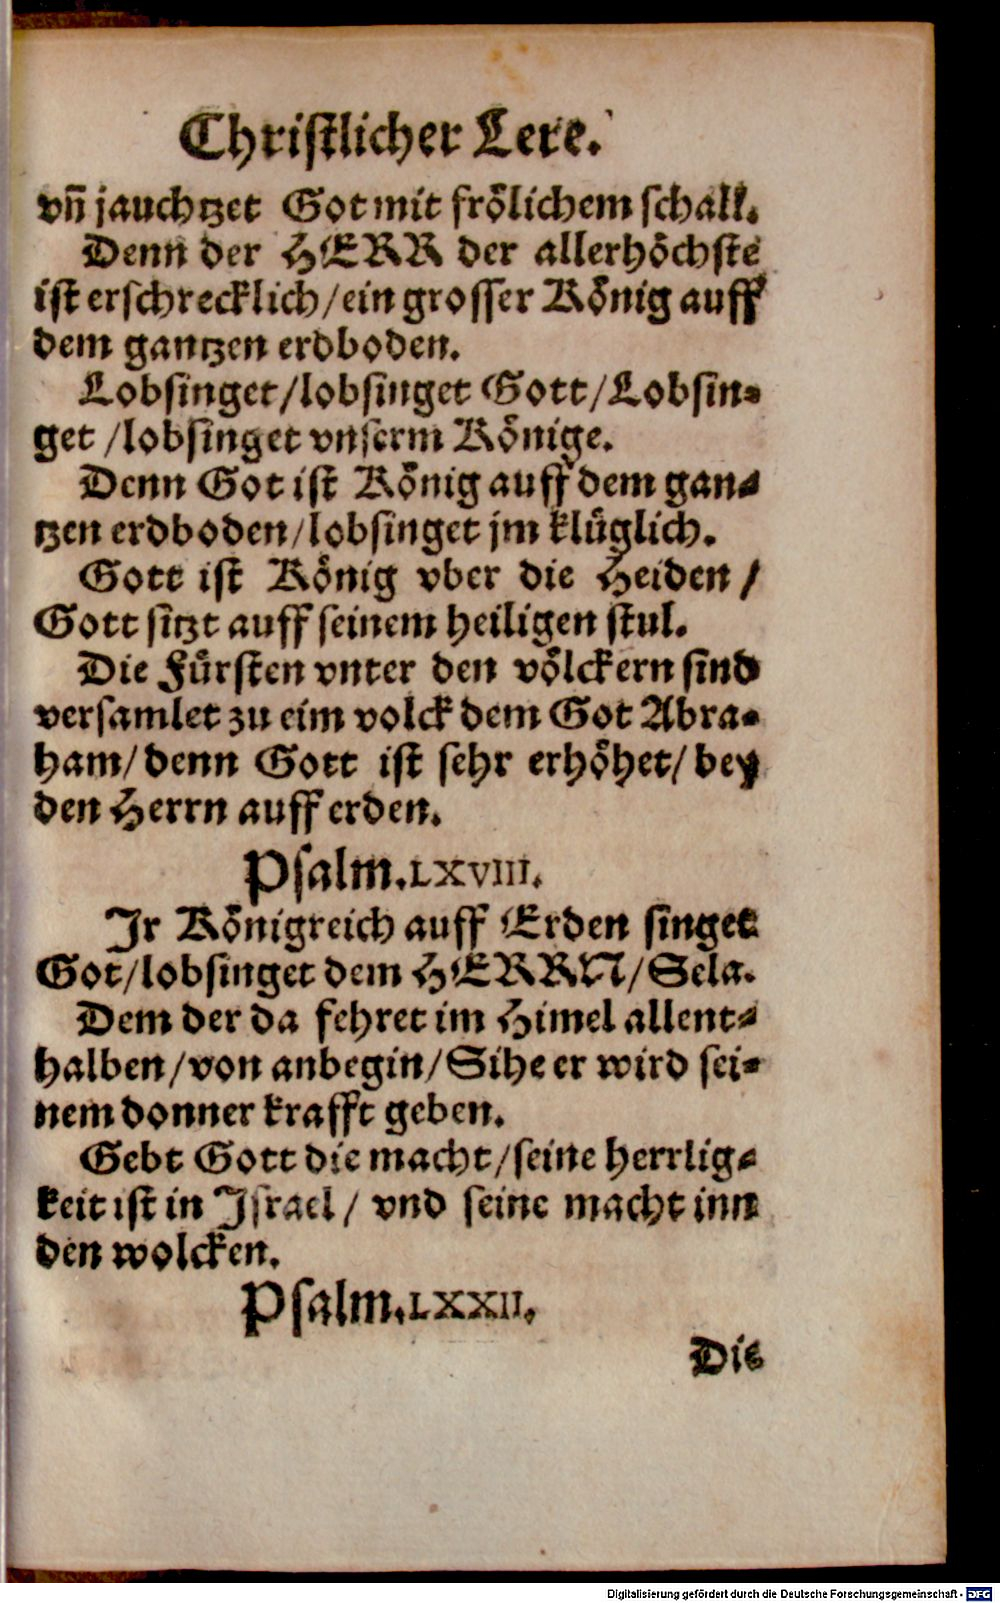 Christlicher Lere.
vñ jauchtzet Got mit frölichem schall.
Denn der HERR der allerhöchste
ist erschrecklich/ein grosser König auff
dem gantzen erdboden.
Lobsinget/lobsinget Gott/Lobsin-
get /lobsinget vnserm Könige.
Denn Got ist König auff dem gan-
tzen erdboden/lobsinget jm klüglich.
Gott ist König vber die Heiden/
Gott sitzt auff seinem heiligen stul.
Die Fürsten vnter den völckern sind
versamlet zu eim volck dem Got Abra-
ham/denn Gott ist sehr erhöhet/bey
den Herrn auff erden.
Psalm.LXVIII.
Jr Königreich auff Erden singet
Got/lobsinget dem HERRN/Sela.
Dem der da fehret im Himel allent-
halben/von anbegin/Sihe er wird sei-
nem donner krafft geben.
Gebt Gott die macht/seine herrlig-
keit ist in Jsrael/ vnd seine macht inn
den wolcken.
Psalm.LXXII.
Die
Digitalisierung gefördert durch die Deutsche Forschungsgemeinschaft - DFG